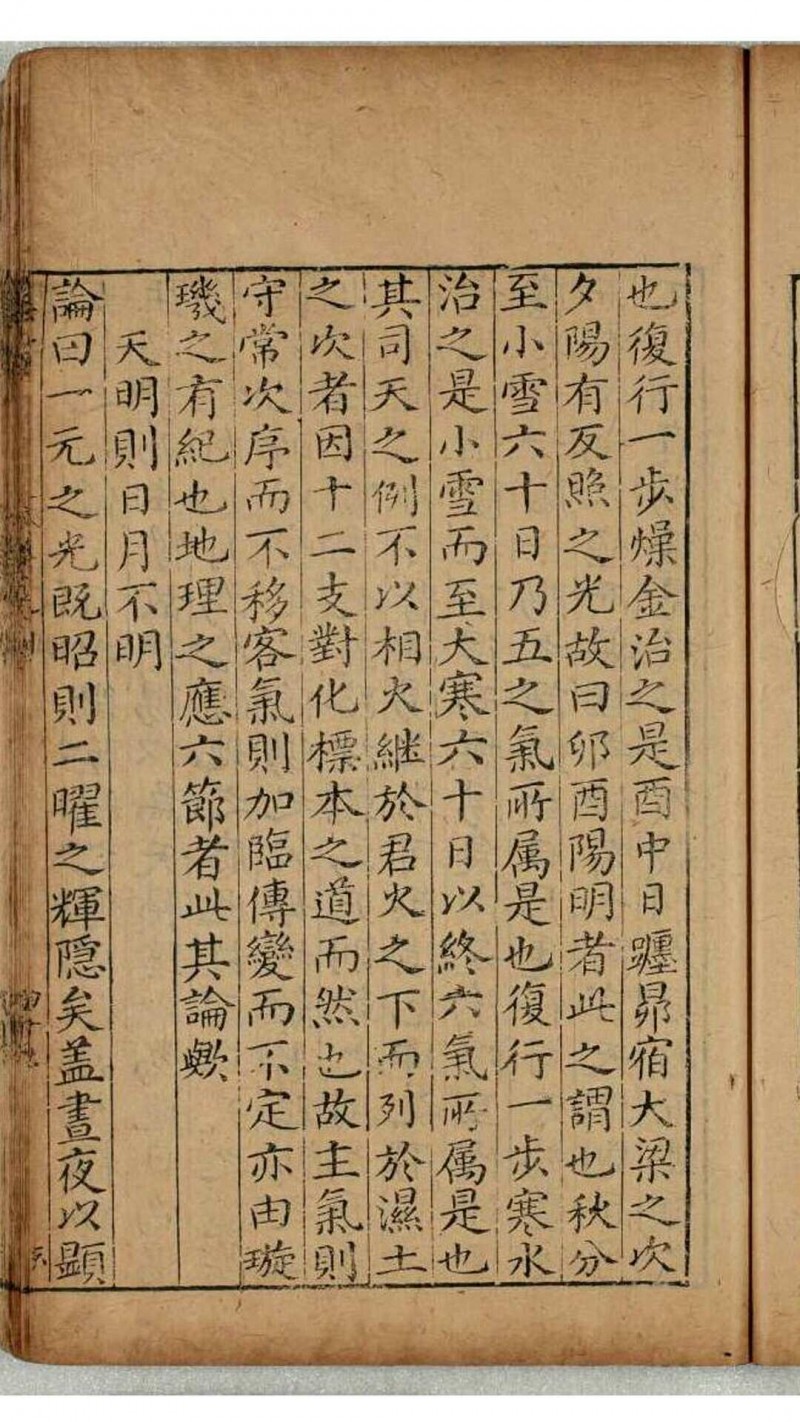 也復行一步燥金治之是酉中日躔昴宿大梁之次
夕陽有反照之光故曰卯酉陽明者此之謂也秋分
至小雪六十日乃五之氣所属是也復行一步寒水
治之是小雪而至大寒六十日以終六氣所属是也
其司天之例不以相火継於君火之下而列於濕土
之次者因十二支對化標本之道而然也故主氣則
守常次序而不移客氣則加臨傳變而不定亦由璇
璣之有紀也地理之應六節者此其論歟
天明則日月不明
論曰一元之光既昭則二曜之輝隠矣盖晝夜以顕